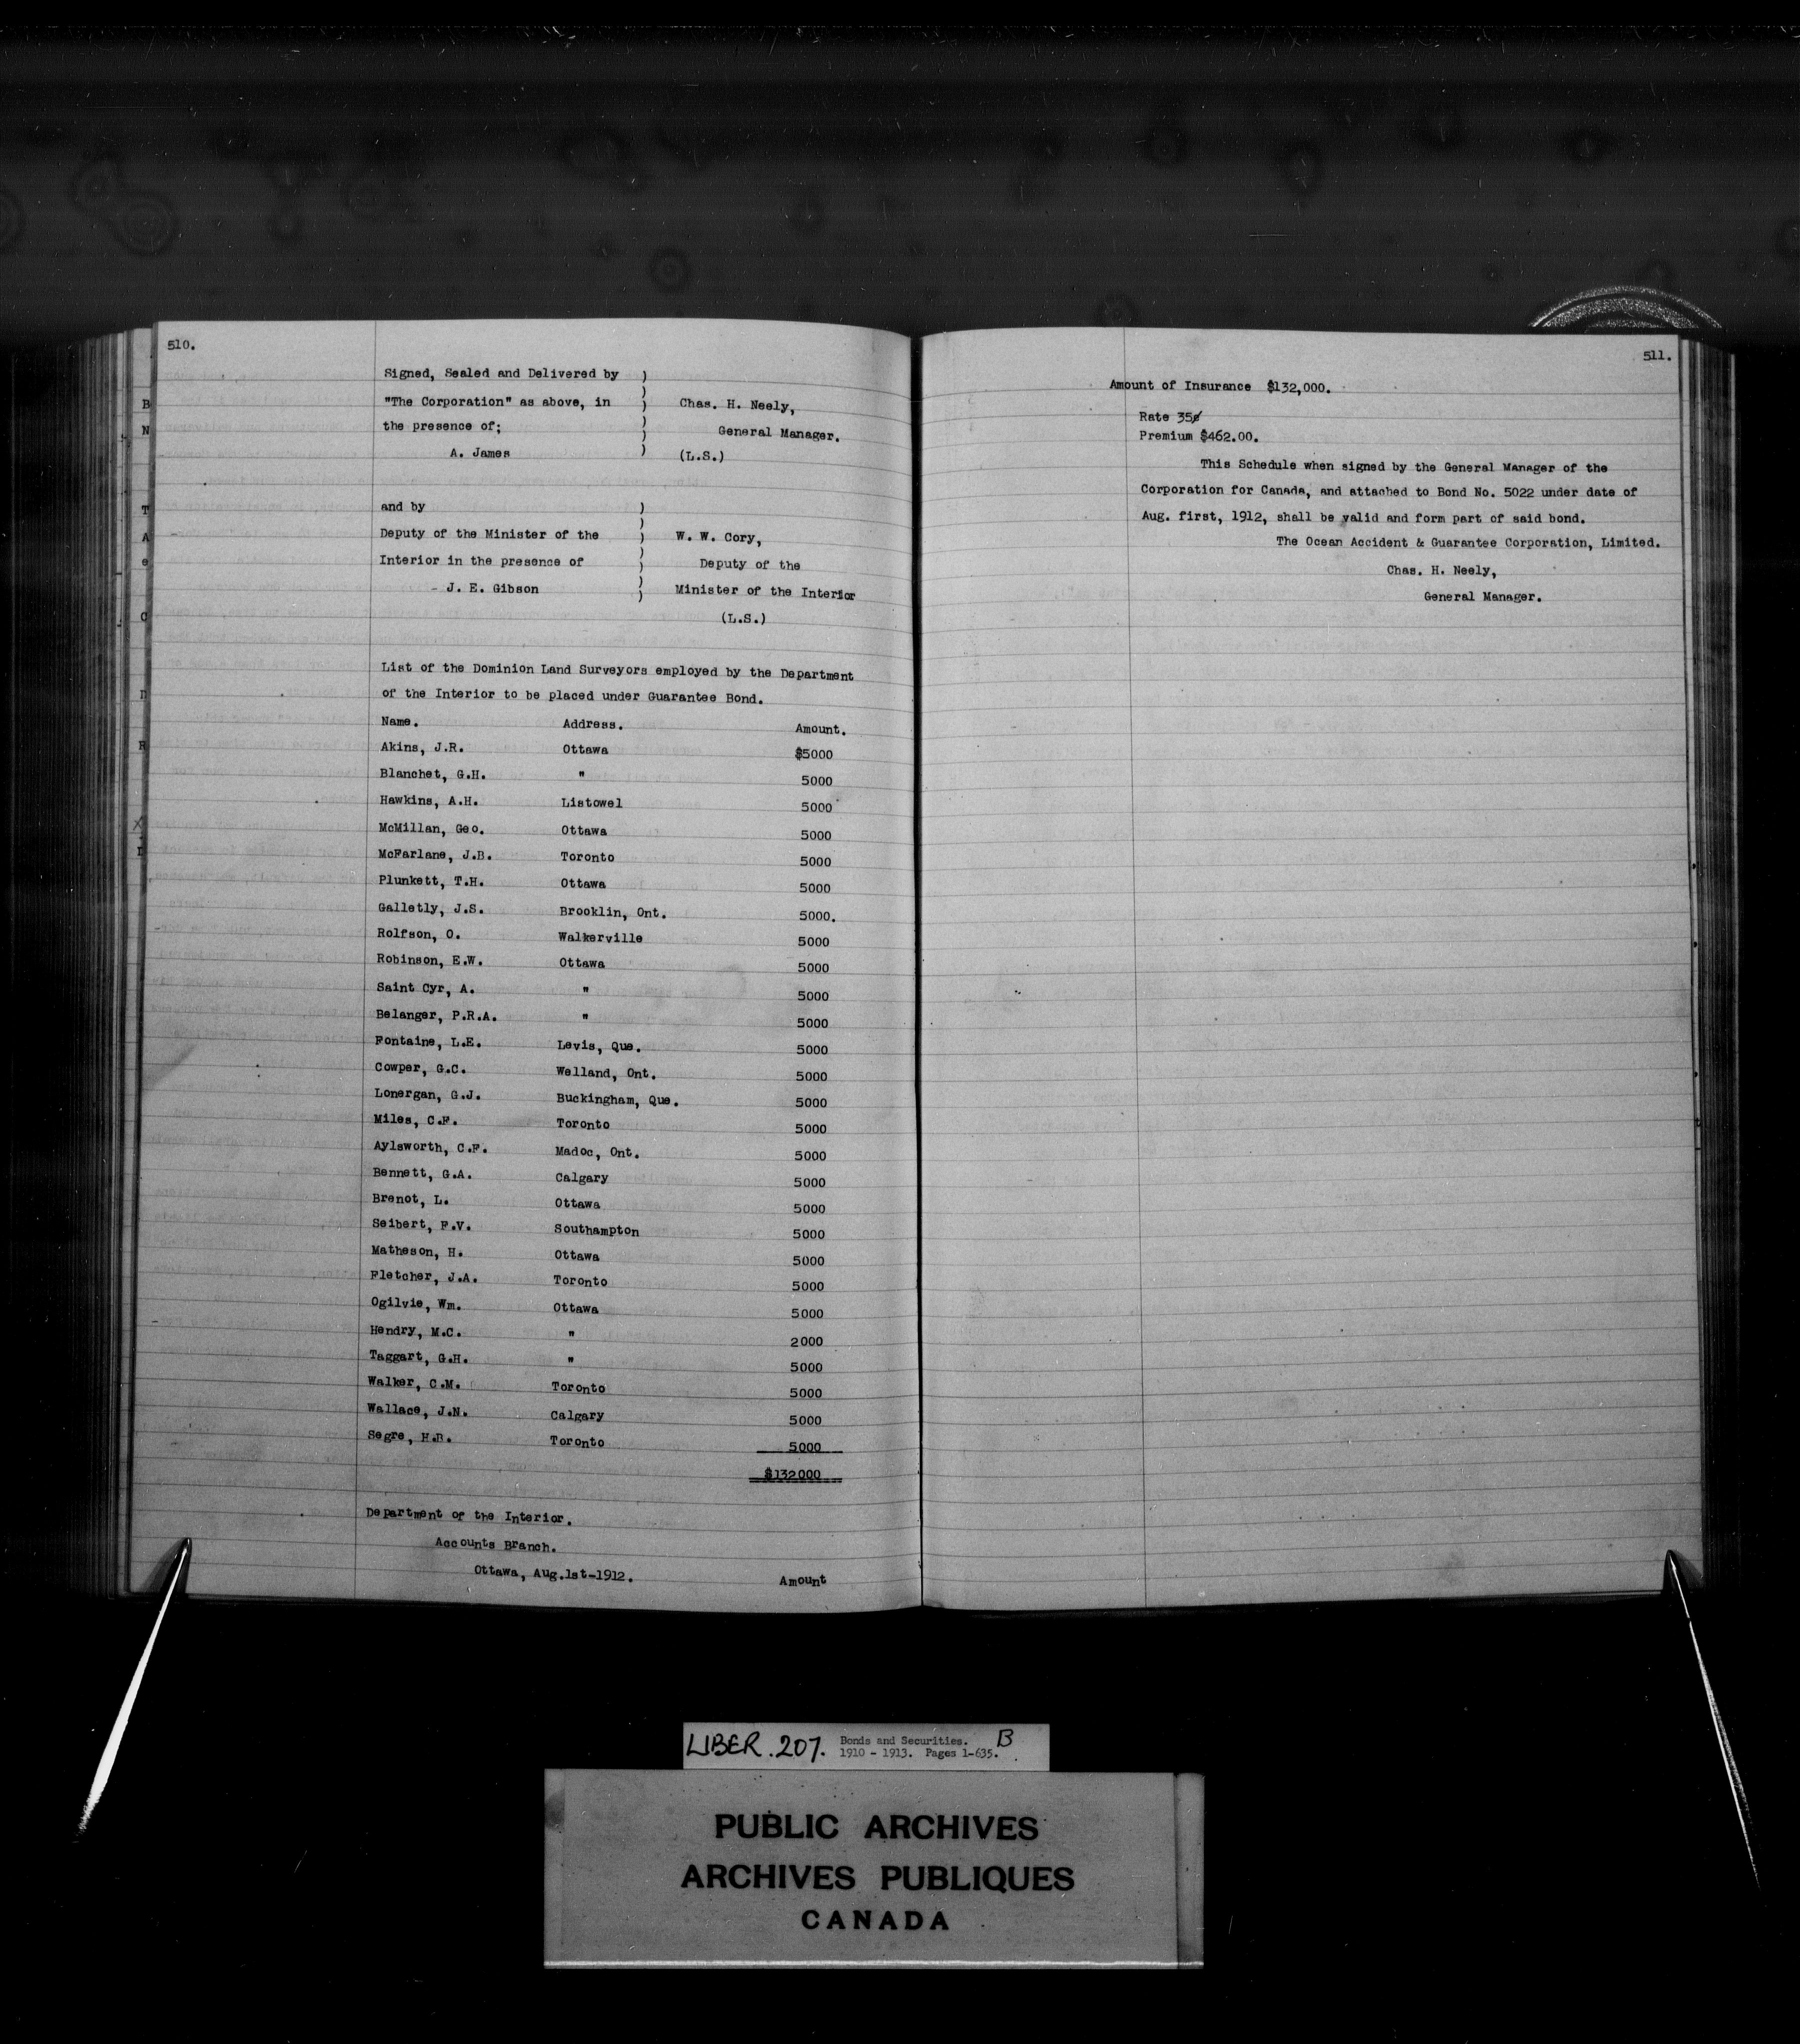 510.
Signed, Sealed and Delivered by )
"The Corporation" as above, in ) Chas. H. Neely,
the presence of; ) General Manager.
A. James ) (L.S.)
and by )
Deputy of the Minister of the ) W. W. Cory,
Interior in the presence of ) Deputy of the
- J. E. Gibson ) Minister of the Interior
(L.S.)
List of the Dominion Land Surveyors employed by the Department
of the Interior to be placed under Guarantee Bond.
Name. Address. Amount.
Akins, J.R. Ottawa $5000
Blanchet, G.H. " 5000
Hawkins, A.H. Listowel 5000
McMillan, Geo. Ottawa 5000
McFarlane, J.B. Toronto 5000
Plunkett, T.H. Ottawa 5000
Galletly, J.S. Brooklin, Ont. 5000.
Rolfson, O. Walkerville 5000
Robinson, E.W. Ottawa 5000
Saint Cyr, A. " 5000
Belanger, P.R.A. " 5000
Fontaine, L.E. Levis, Que. 5000
Cowper, G.C. Welland, Ont. 5000
Lonergan, G.J. Buckingham, Que. 5000
Miles, C.F. Toronto 5000
Aylsworth, C.F. Madoc, Ont. 5000
Bennett, G.A. Calgary 5000
Brenot, L. Ottawa 5000
Seibert, F.V. Southampton 5000
Matheson, H. Ottawa 5000
Fletcher, J.A. Toronto 5000
Ogilvie, Wm. Ottawa 5000
Hendry, M.C. " 2000
Taggart, G.H. " 5000
Walker, C.M. Toronto 5000
Wallace, J.N. Calgary 5000
Segre, H.B. Toronto 5000
$132000
Department of the Interior.
Accounts Branch.
Ottawa, Aug.1st-1912. Amount
511.
Amount of Insurance $132,000.
Rate 35¢
Premium $462.00.
This Schedule when signed by the General Manager of the
Corporation for Canada, and attached to Bond No. 5022 under date of
Aug. first, 1912, shall be valid and form part of said bond.
The Ocean Accident & Guarantee Corporation, Limited.
Chas. H. Neely,
General Manager.
LIBER. 207. Bonds and Securities. B
1910 - 1913. Pages 1-635.
PUBLIC ARCHIVES
ARCHIVES PUBLIQUES
CANADA